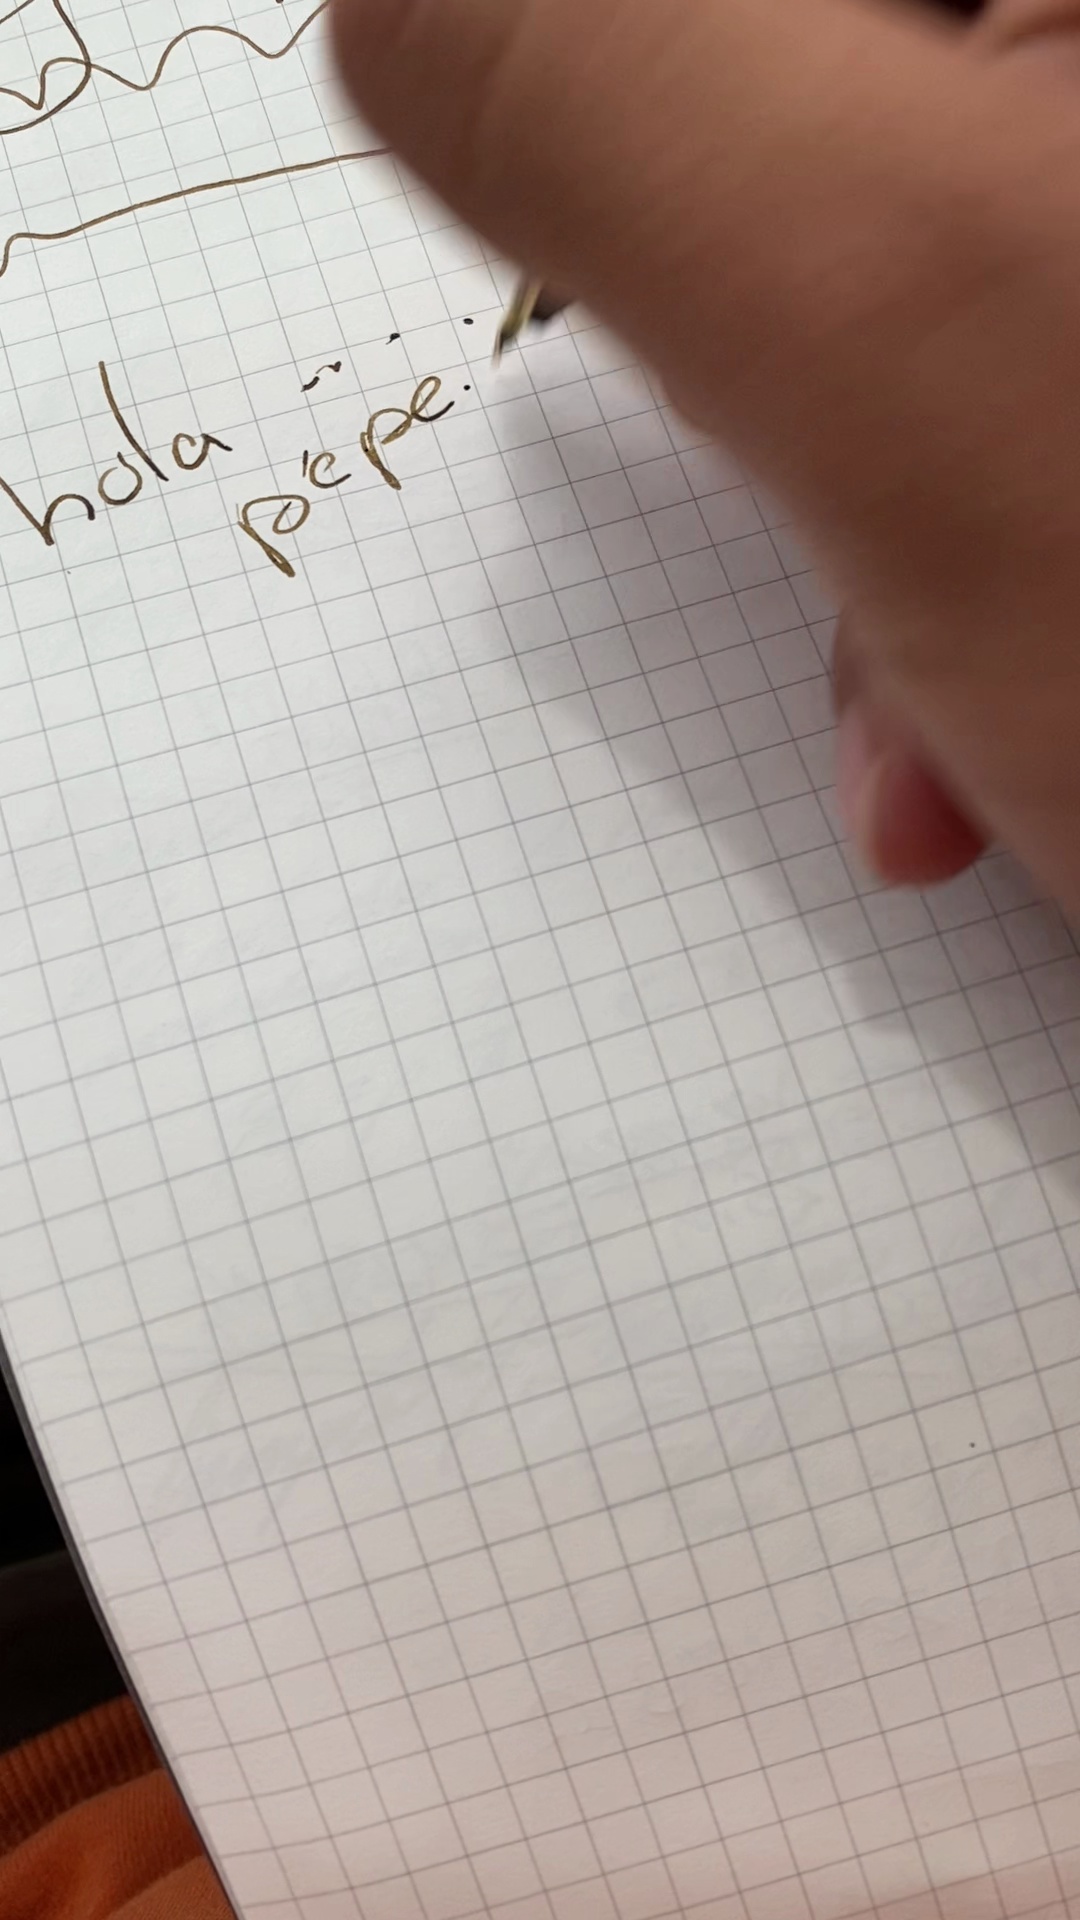 hola pepe.